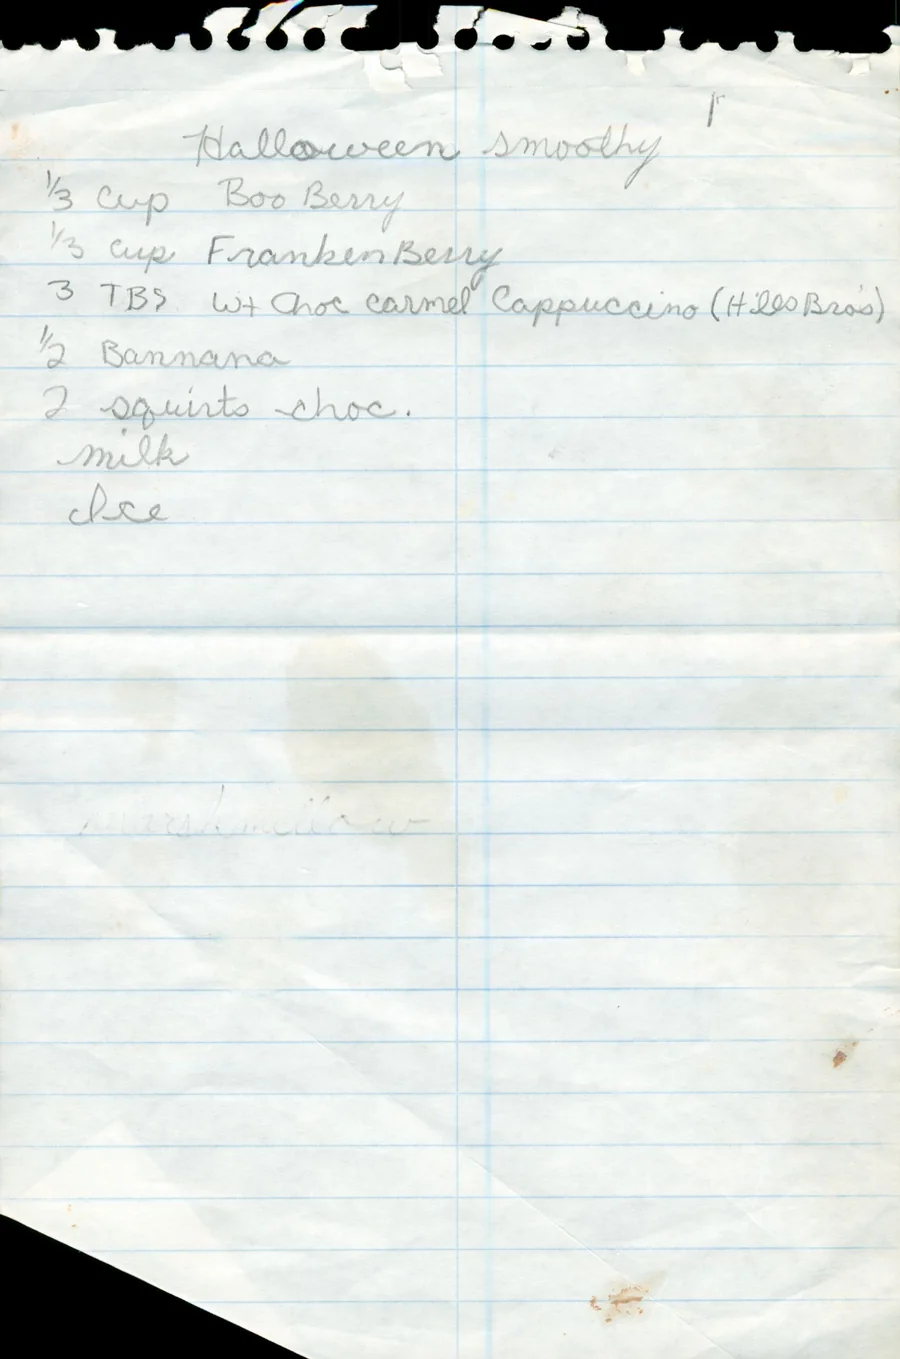 Halloween smoothy
1/3 cup Boo Berry
1/3 cup FrankenBerry
3 TBS Wt Choc carmel Cappuccino (Hills Bro's)
1/2 Bannana
2 squirts choc.
milk
Ice
marshmillow